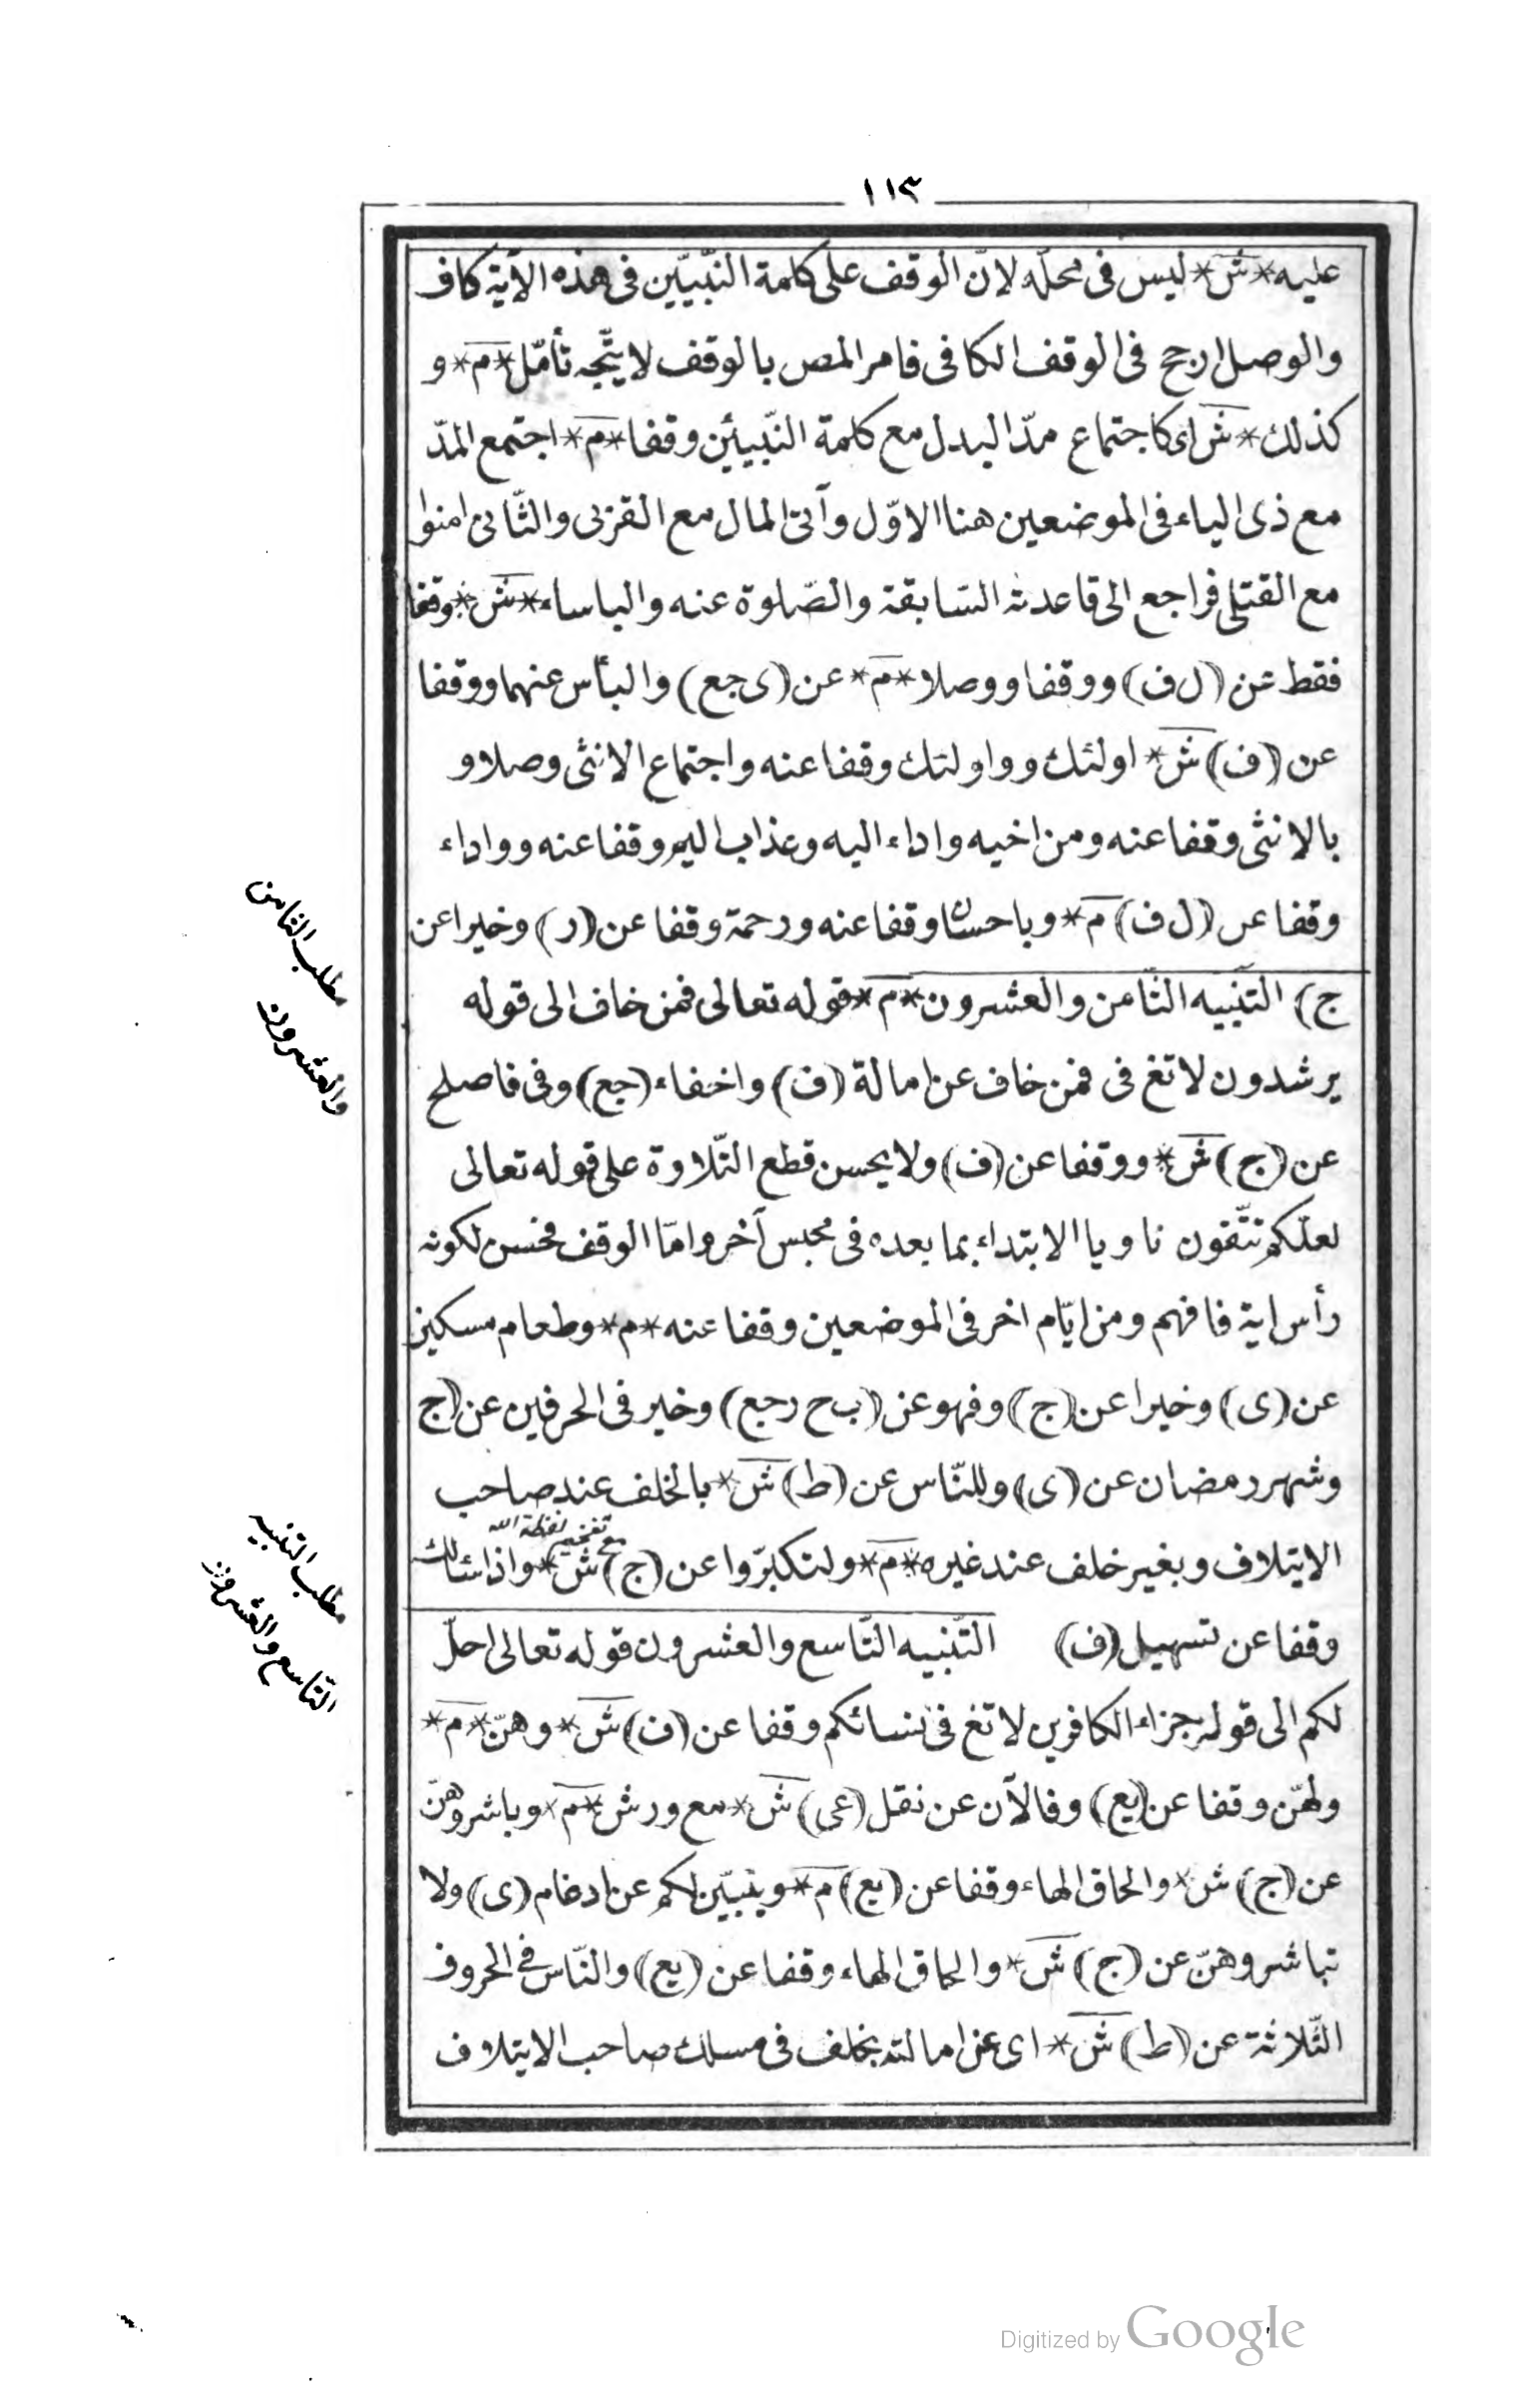 ١١٣
عليه * ش * ليس فى محلّه لانّ الوقف على كلمة النّبيّين فى هذه الآية كاف
والوصل ارجح فى الوقف الكافى فامر المص بالوقف لا يتّجه تأمّل * م * و
كذلك * ش اى كاجتماع مدّ البدل مع كلمة النّبيئن وقفا * م * اجتمع المدّ
مع ذى الياء فى الموضعين هنا الاوّل وآتى المال مع القربى والثّانى امنوا
مع القتلى فراجع الى قاعدته السّابقة والصّلوة عنه والباساء * ش * وقفا
فقط عن (ل ف) ووقفا ووصلا * م * عن (ى جع) والبأس عنهما ووقفا
عن (ف) ش * اولئك وواولئك وقفا عنه واجتماع الانثى وصلا و
بالانثى وقفا عنه ومن اخيه واداء اليه وعذاب اليم وقفا عنه وواداء
وقفا عن (ل ف) م * وباحسان وقفا عنه ورحمة وقفا عن (ر) وخيرا عن
ج) التّنبيه الثّامن والعشرون * م * قوله تعالى فمن خاف الى قوله
يرشدون لا تغ فى فمن خاف عن امالة (ف) واخفاء (جع) وفى فاصلح
عن (ج) ش * ووقفا عن (ف) ولا يحسن قطع التّلاوة على قوله تعالى
لعلّكم تتّقون ناويا الابتداء بما بعده فى مجلس آخر وامّا الوقف فحسن لكونه
رأس اية فافهم ومن ايّام اخر فى الموضعين وقفا عنه * م * وطعام مسكين
عن (ى) وخيرا عن (ج) وفهو عن (ب ح ر جع) وخير فى الحرفين عن (ج
وشهر رمضان عن (ى) وللنّاس عن (ط) ش * بالخلف عند صاحب
الايتلاف وبغير خلف عند غيره * م * ولتكبّروا عن (ج) ش * مع تفخيم لفظة الله * واذا سئالك
وقفا عن تسهيل (ف) التّنبيه التّاسع والعشرون قوله تعالى احلّ
لكم الى قوله جزاء الكافرين لا تغ فى نسائكم وقفا عن (ف) ش * وهنّ * م *
ولهنّ وقفا عن (يع) وفالآن عن نقل (عى) ش * مع ورش * م * وباشروهنّ
عن (ج) ش * والحاق الهاء وقفا عن (يع) م * ويتبيّن لكم عن ادغام (ى) ولا
تباشروهنّ عن (ج) ش * والحاق الهاء وقفا عن (يع) والنّاس فى الحروف
الثّلاثة عن (ط) ش * اى عن امالته بخلف فى مسلك صاحب الايتلاف
مطلب الثامن
والعشرون
مطلب التنبيه
التّاسع والعشرون
Digitized by Google